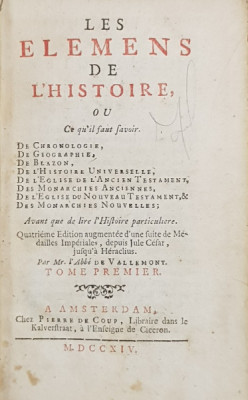 LES
ELEMENS
DE
L'HISTOIRE,
OU
Ce qu'il faut savoir.
DE CHRONOLOGIE,
DE GEOGRAPHIE,
DE BLAZON,
DE L'HISTOIRE UNIVERSELLE,
DE L'EGLISE DE L'ANCIEN TESTAMENT,
DES MONARCHIES ANCIENNES,
DE L'EGLISE DU NOUVEAU TESTAMENT, &
DES MONARCHIES NOUVELLES;
Avant que de lire l'Histoire particuliere.
Quatriéme Edition augmentée d'une suite de Mé-
dailles Impériales, depuis Jule César,
jusqu'à Héraclius.
Par Mr. l'Abbé DE VALLEMONT.
TOME PREMIER.
A AMSTERDAM,
Chez PIERRE DE COUP, Libraire dans le
Kalverstraat, à l'Enseigne de Ciceron.
M.DCCXIV.